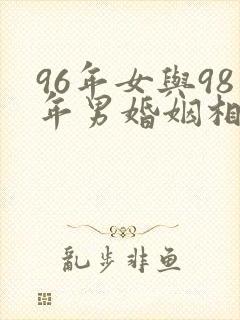 96年女與98
年男婚姻相
亂步非鱼